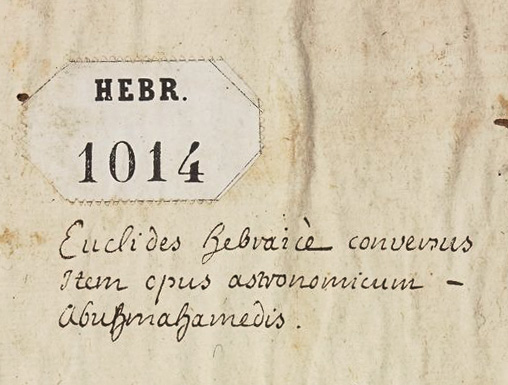 HEBR.
1014
Euclides hebraicè conversus
Item opus astronomicum -
Abuhmahamedis.